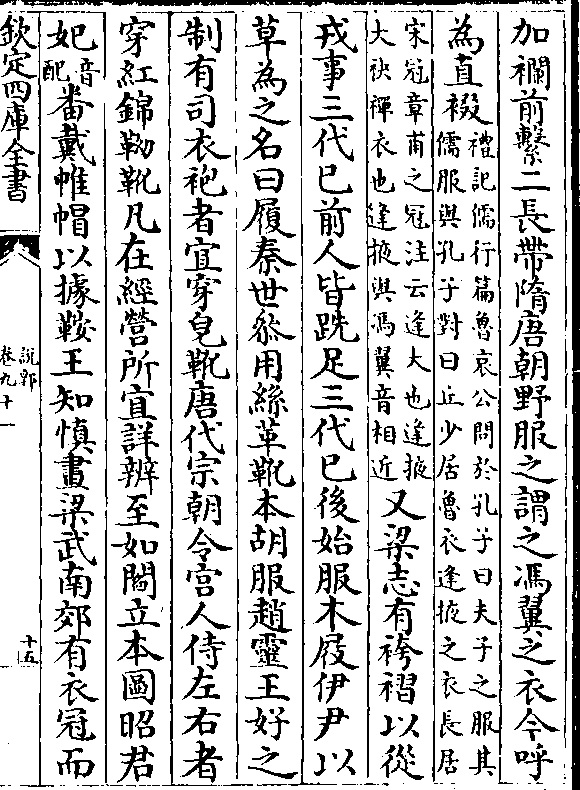 加襴前繫二長帶隋唐朝野服之謂之馮翼之衣今呼
為直裰
禮記儒行篇魯哀公問於孔子曰夫子之服其
儒服與孔子對曰丘少居魯衣逢掖之衣長居
宋冠章甫之冠注云逢大也逢掖
大袂襌衣也逢掖與馮翼音相近
又梁志有袴褶以從
戎事三代已前人皆跣足三代已後始服木屐伊尹以
草為之名曰履秦世叅用絲革靴本胡服趙靈王好之
制有司衣袍者宜穿皂靴唐代宗朝令宫人侍左右者
穿紅錦靿靴凡在經營所宜詳辨至如閻立本圖昭君
妃
音
配
畨戴帷帽以據鞍王知慎畫梁武南郊有衣冠而
欽定四庫全書
說郛
卷九十一
十五